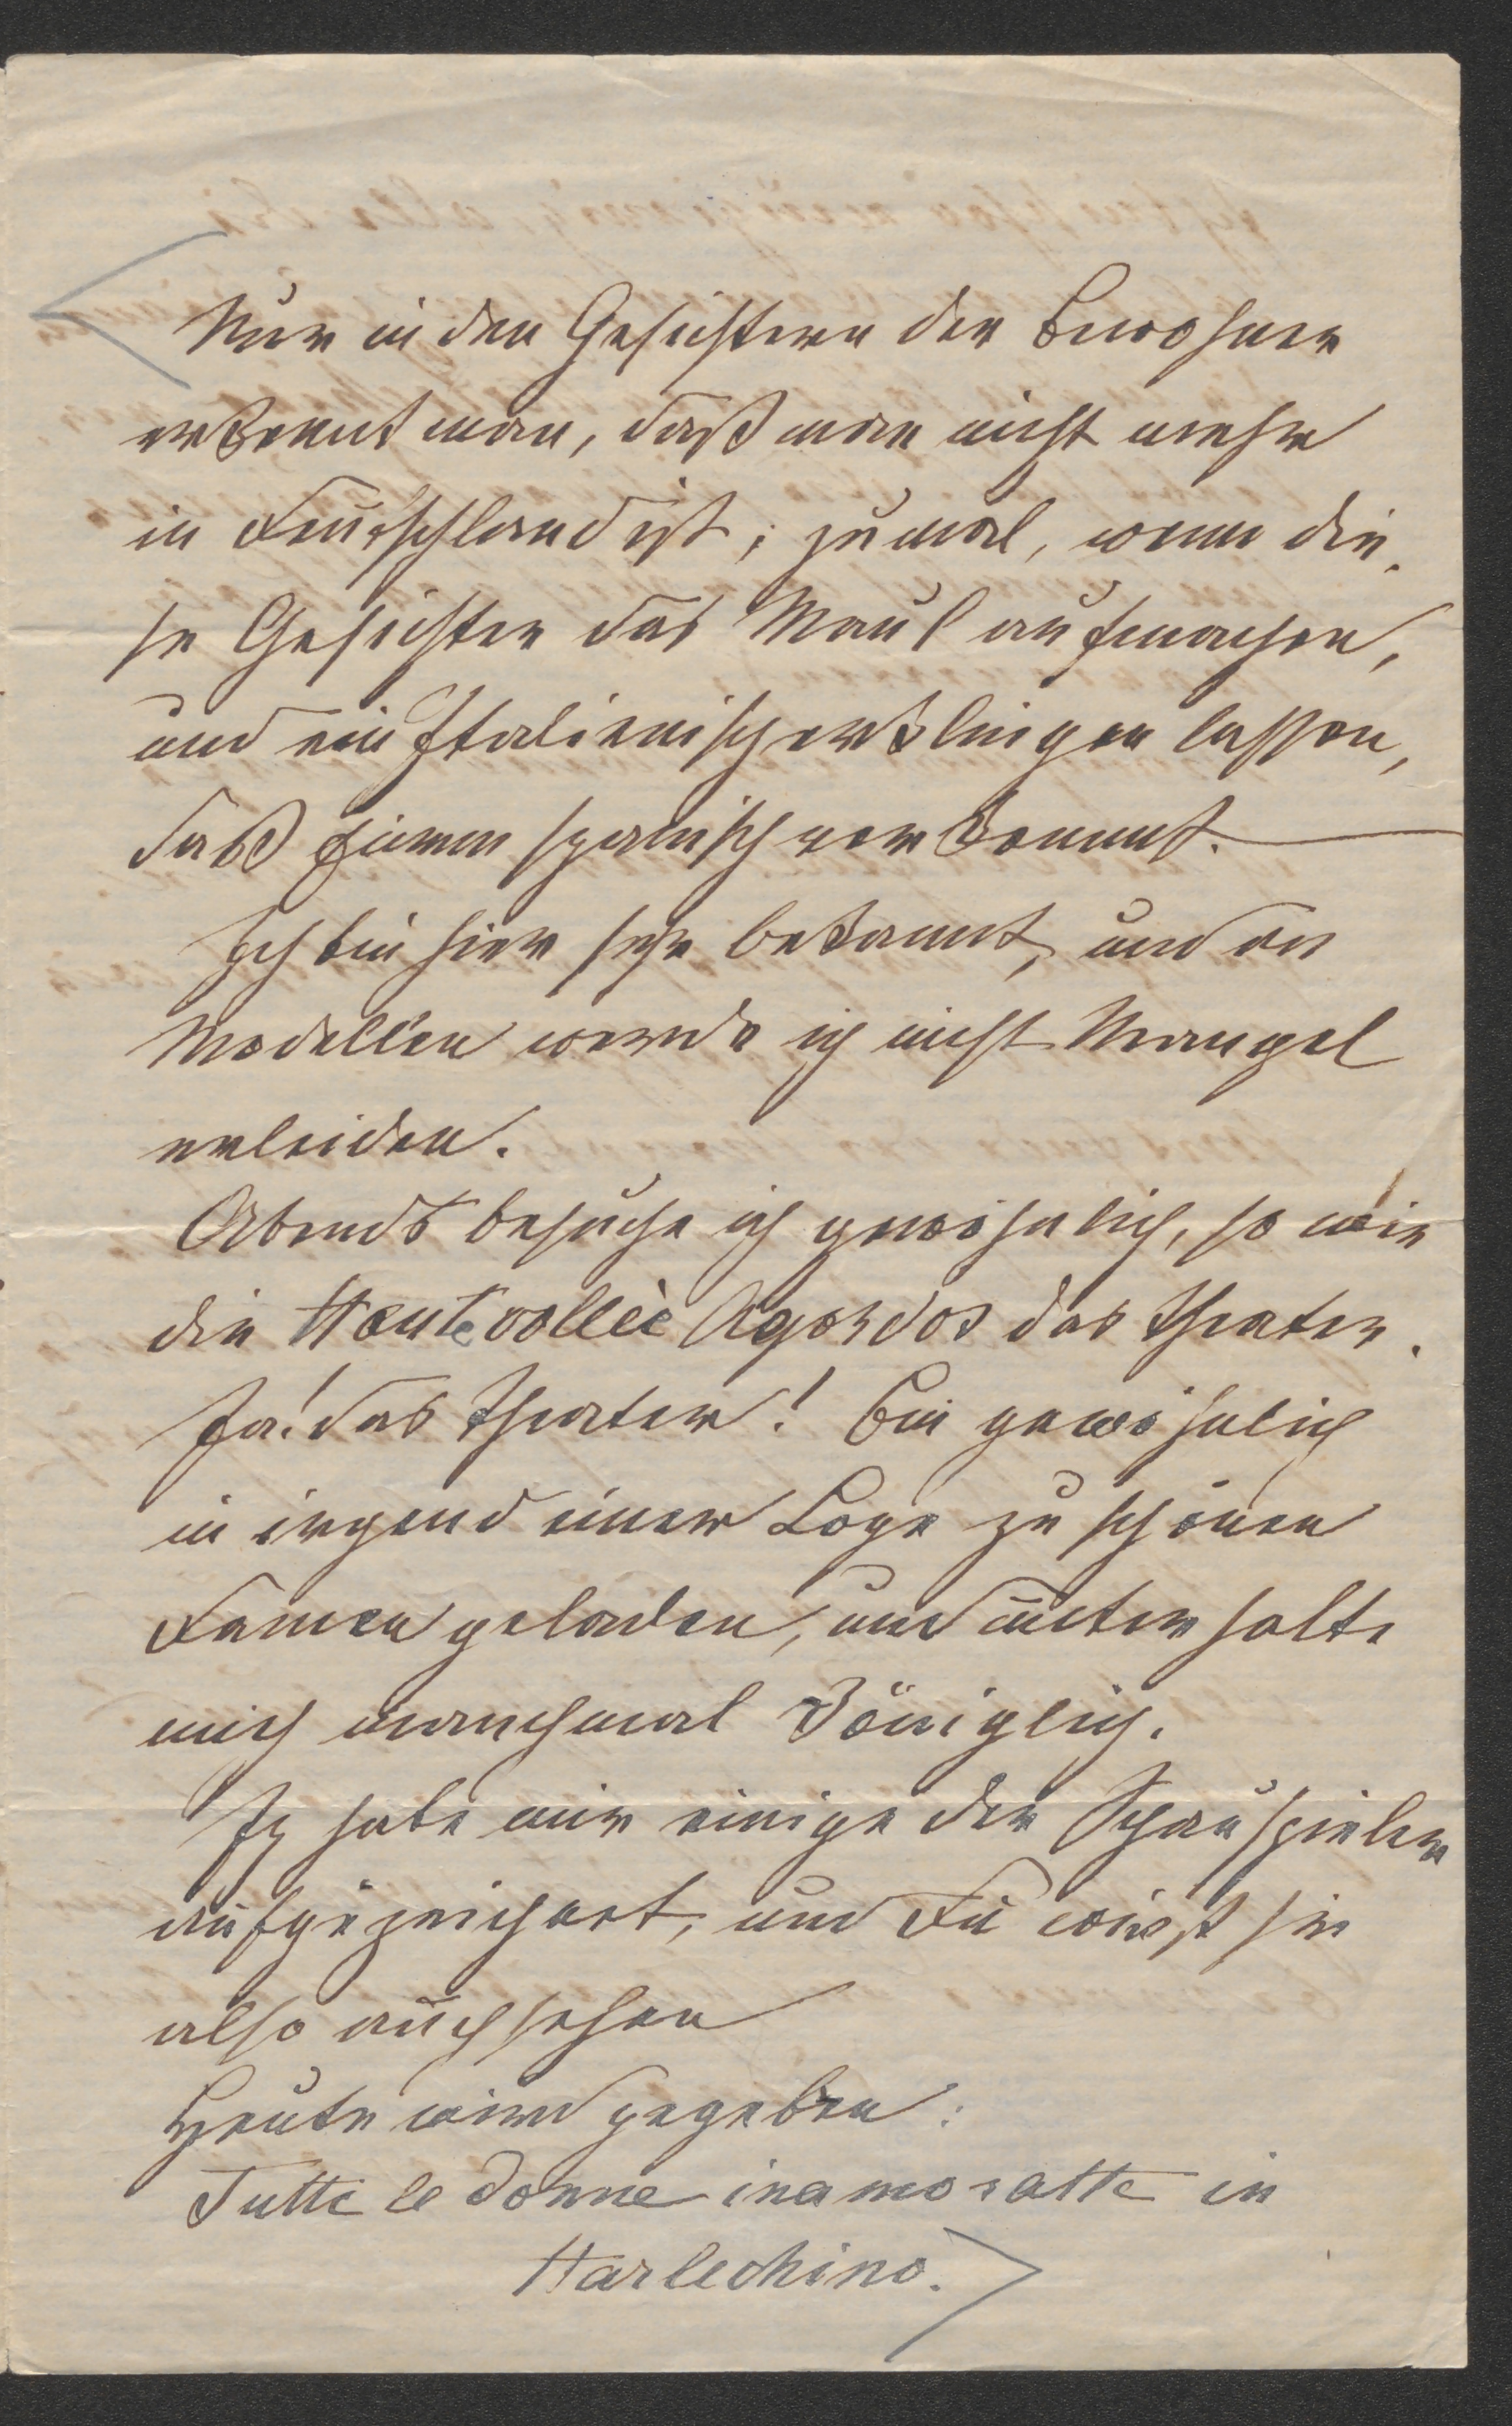 Nur in den Gesichtern der Bewohner
erkennt man, daß man nicht mehr
in Deutschland ist; zumal, wenn die-
se Gesichter das Maul aufmachen,
und ein Italienisch erklingen lassen,
daß Einem spanisch vorkommt. —
Ich bin hier sehr bekannt, und an
Modellen werde ich nicht Mangel
erleiden.
Abends besuche ich gewöhnlich, so wie
die Hautevolleè Agordos das Theater.
Ja! das Theater! Bin gewöhnlich
in irgend einer Loge zu schönen
Damen geladen, und unterhalte
mich manchmal königlich.
Ich habe mir einige der Schauspieler
aufgezeichnet, und Du wirst sie
also auch sehen
Heute wird gegeben:
Tutte le donne inamoratte in
Harlechino.